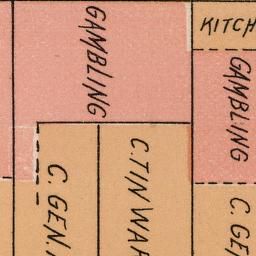 GAMBLING
KITCH
GAMBLING
C. GEN.
C. TIN WAR
C. GEN